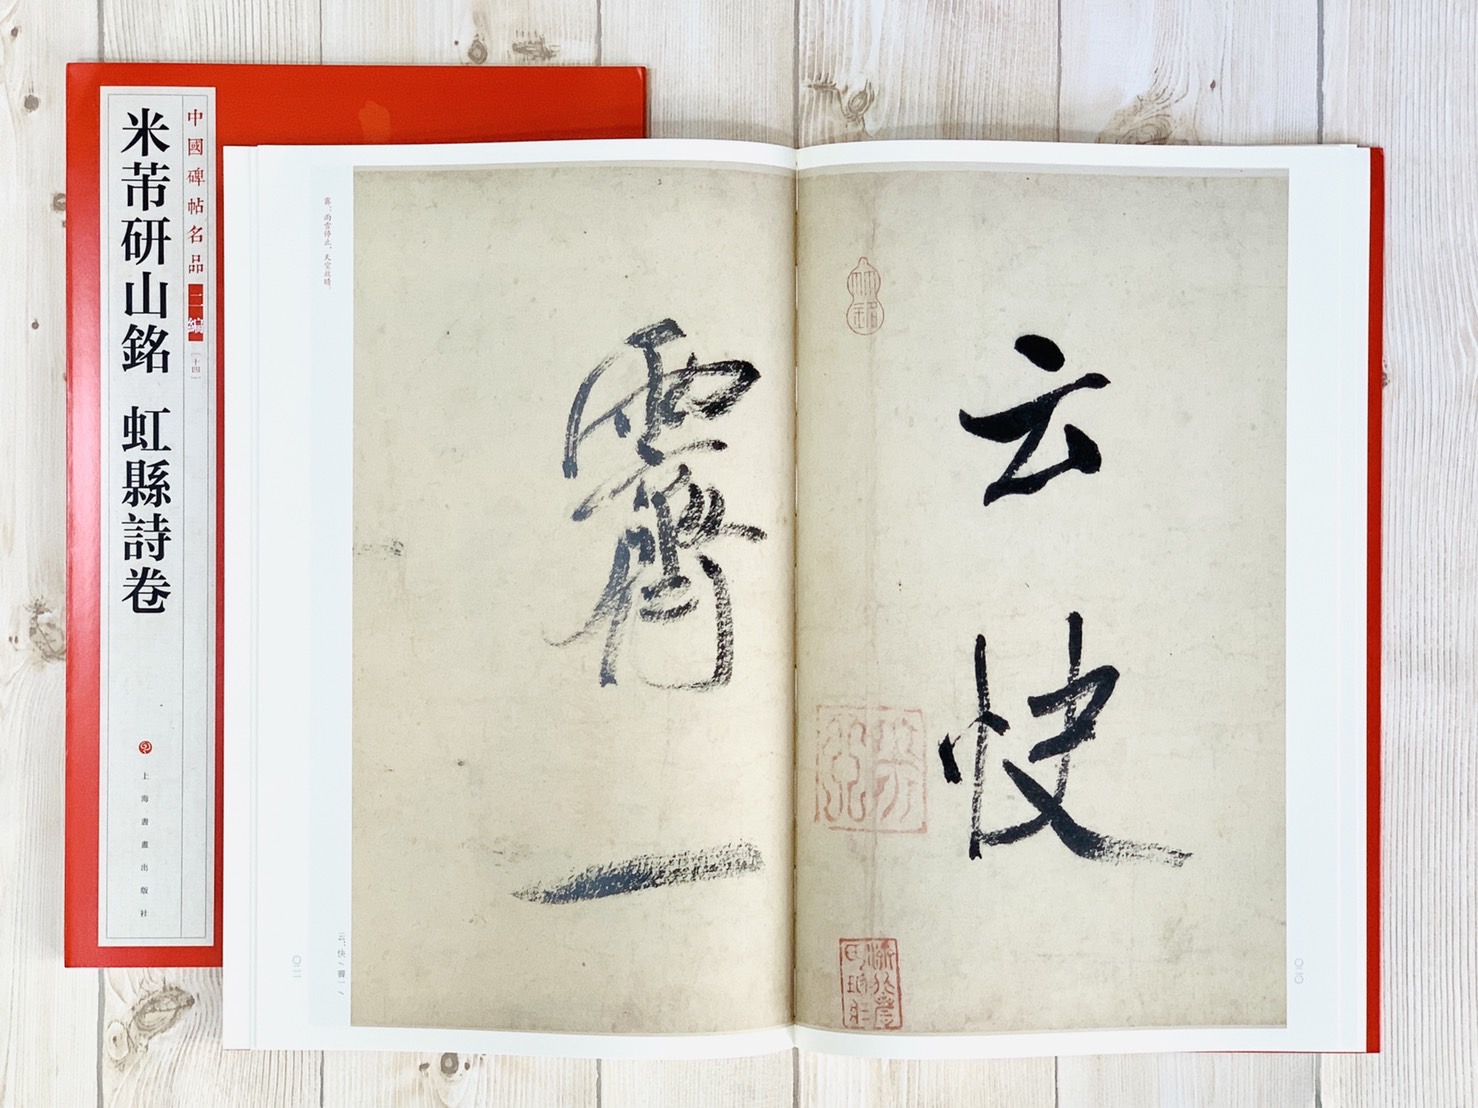 中國碑帖名品
二編
［十四］
米芾研山銘 虹縣詩卷
上海書畫出版社
云快
霽一
霽：雨雪停止，天空放晴。
云：快／霽一／
〇二〇
〇二一